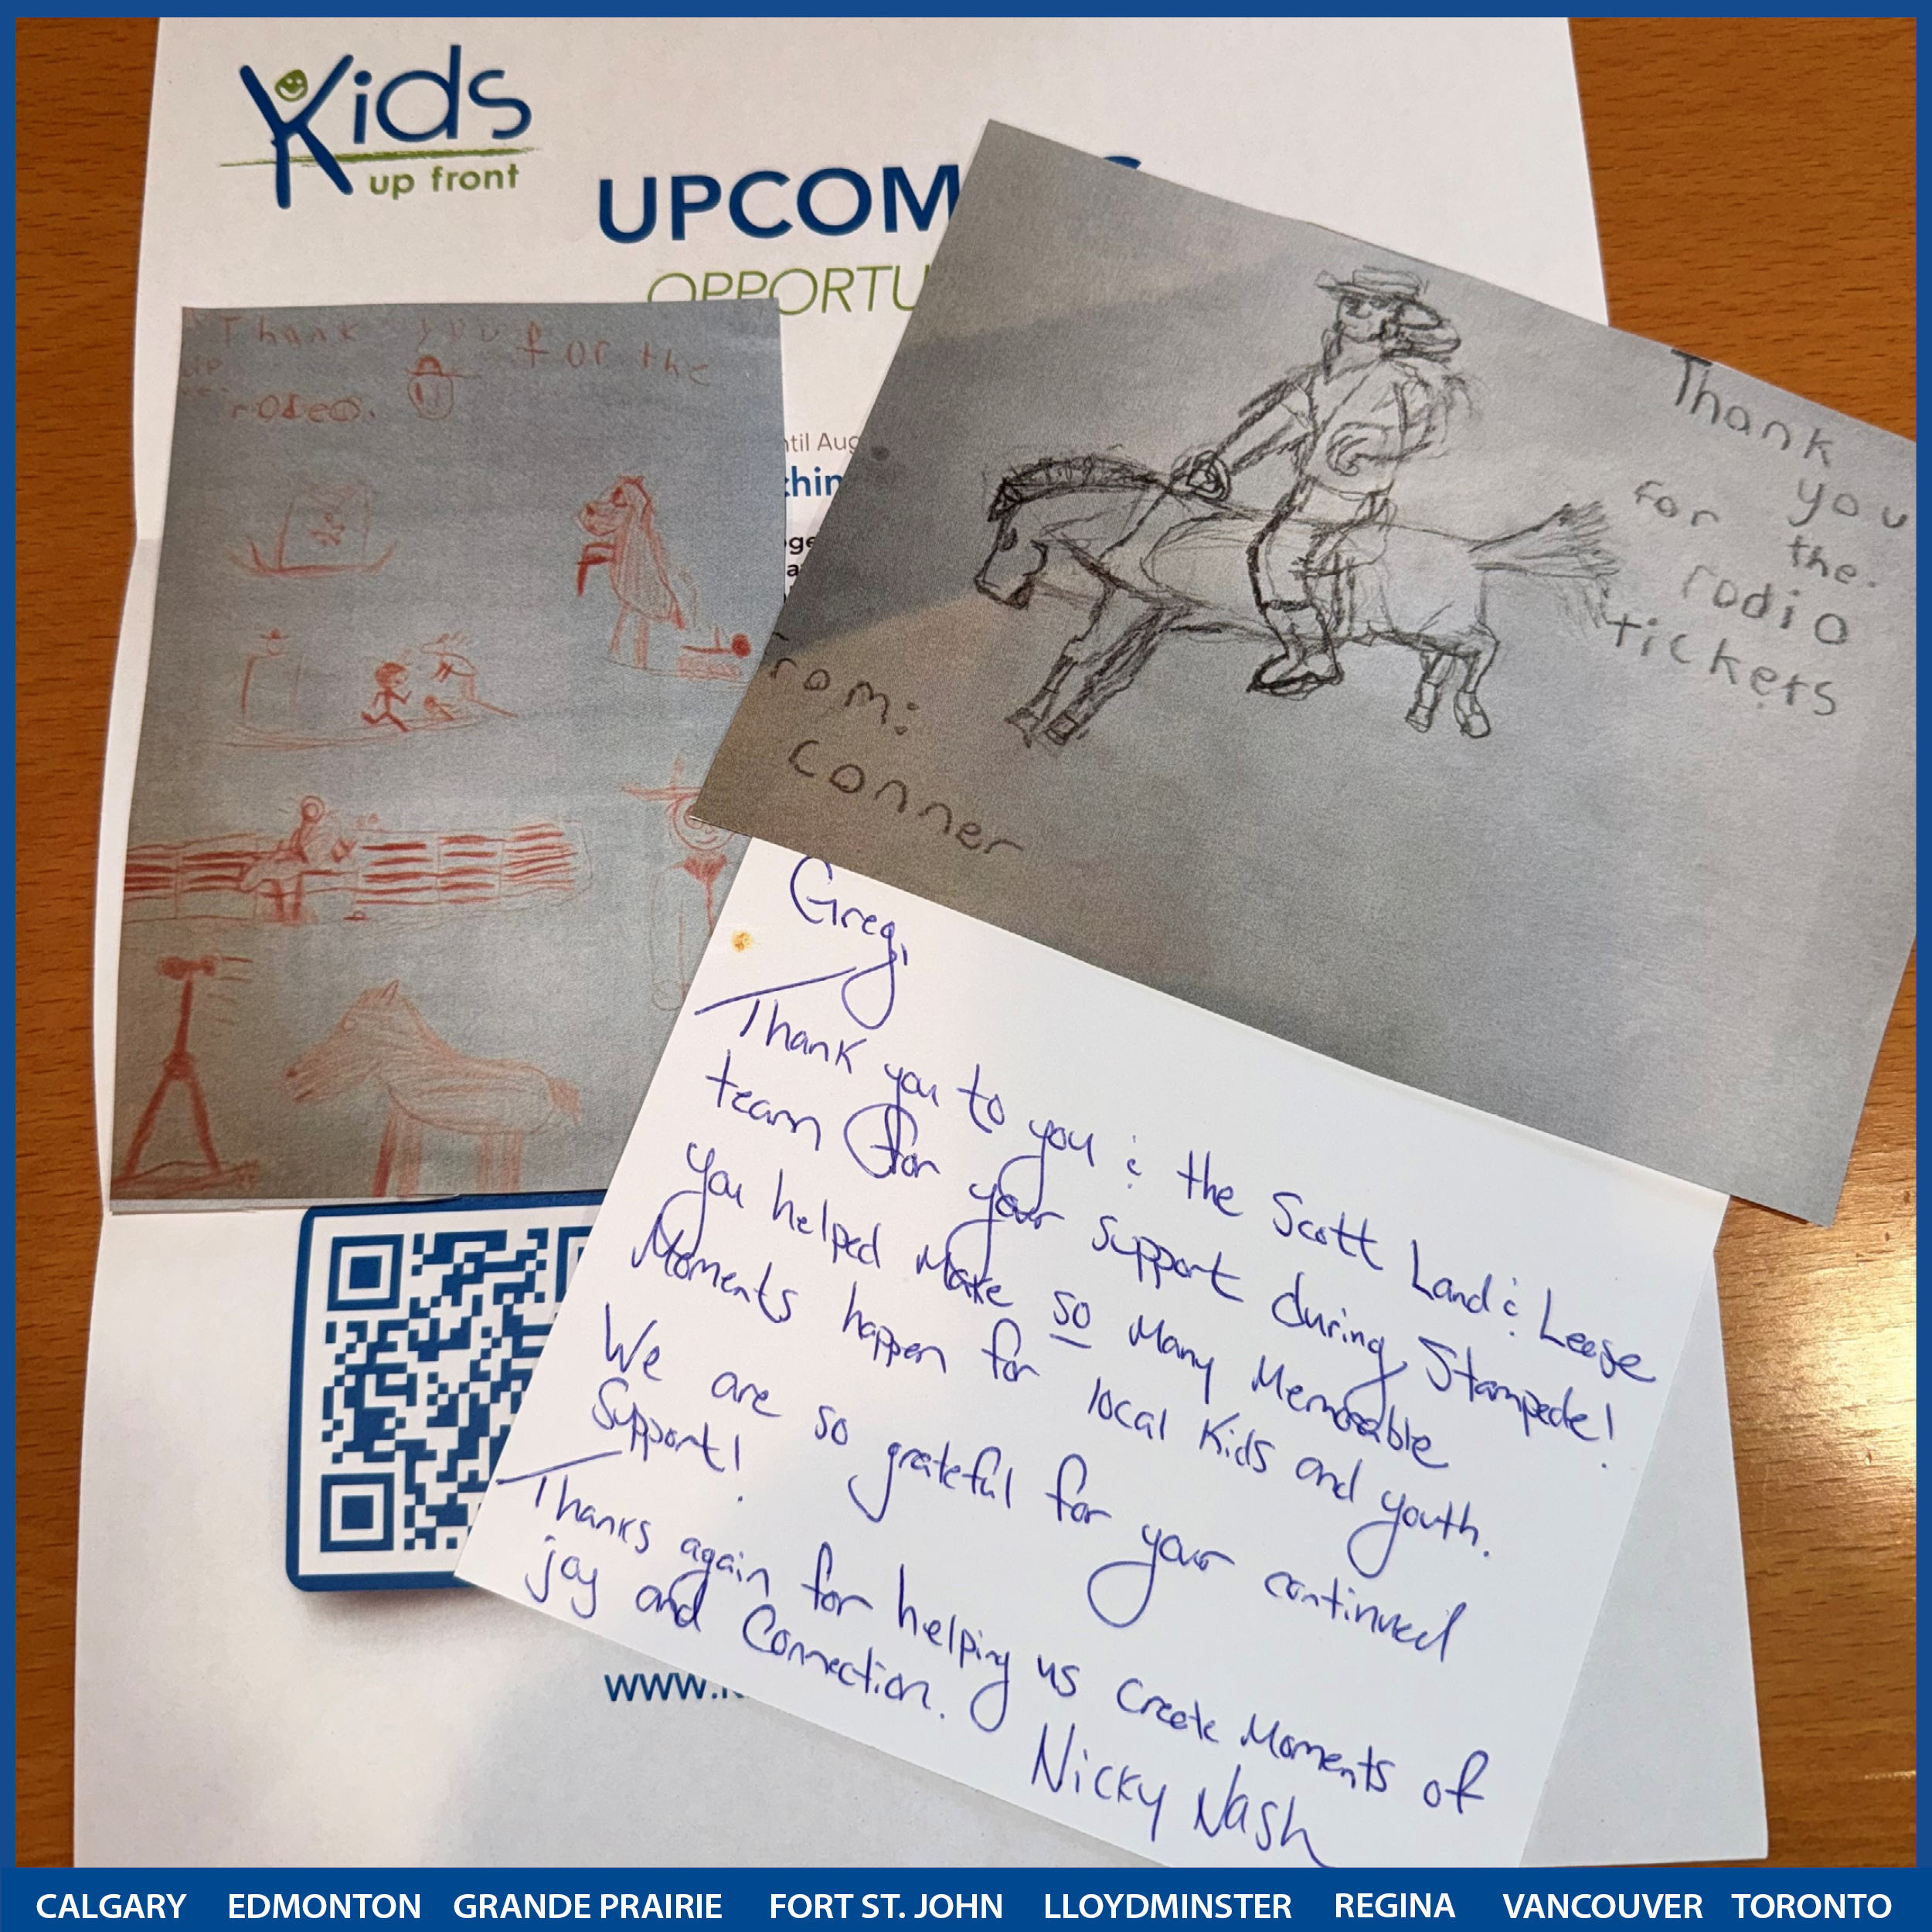 Kids
up front
UPCOM
OPPORTU
Thank you for the
rodeo.
til Aug
chin
Thank
you
for the.
rodio
tickets
rom:
Conner
Greg,
Thank you to you & the Scott Land & Leese
team for your support during Stampede!
You helped make so many memorable
moments happen for local kids and youth.
We are so grateful for your continued
support!
Thanks again for helping us create moments of
joy and connection.
Nicky Nash
www.
CALGARY EDMONTON GRANDE PRAIRIE FORT ST. JOHN LLOYDMINSTER REGINA VANCOUVER TORONTO